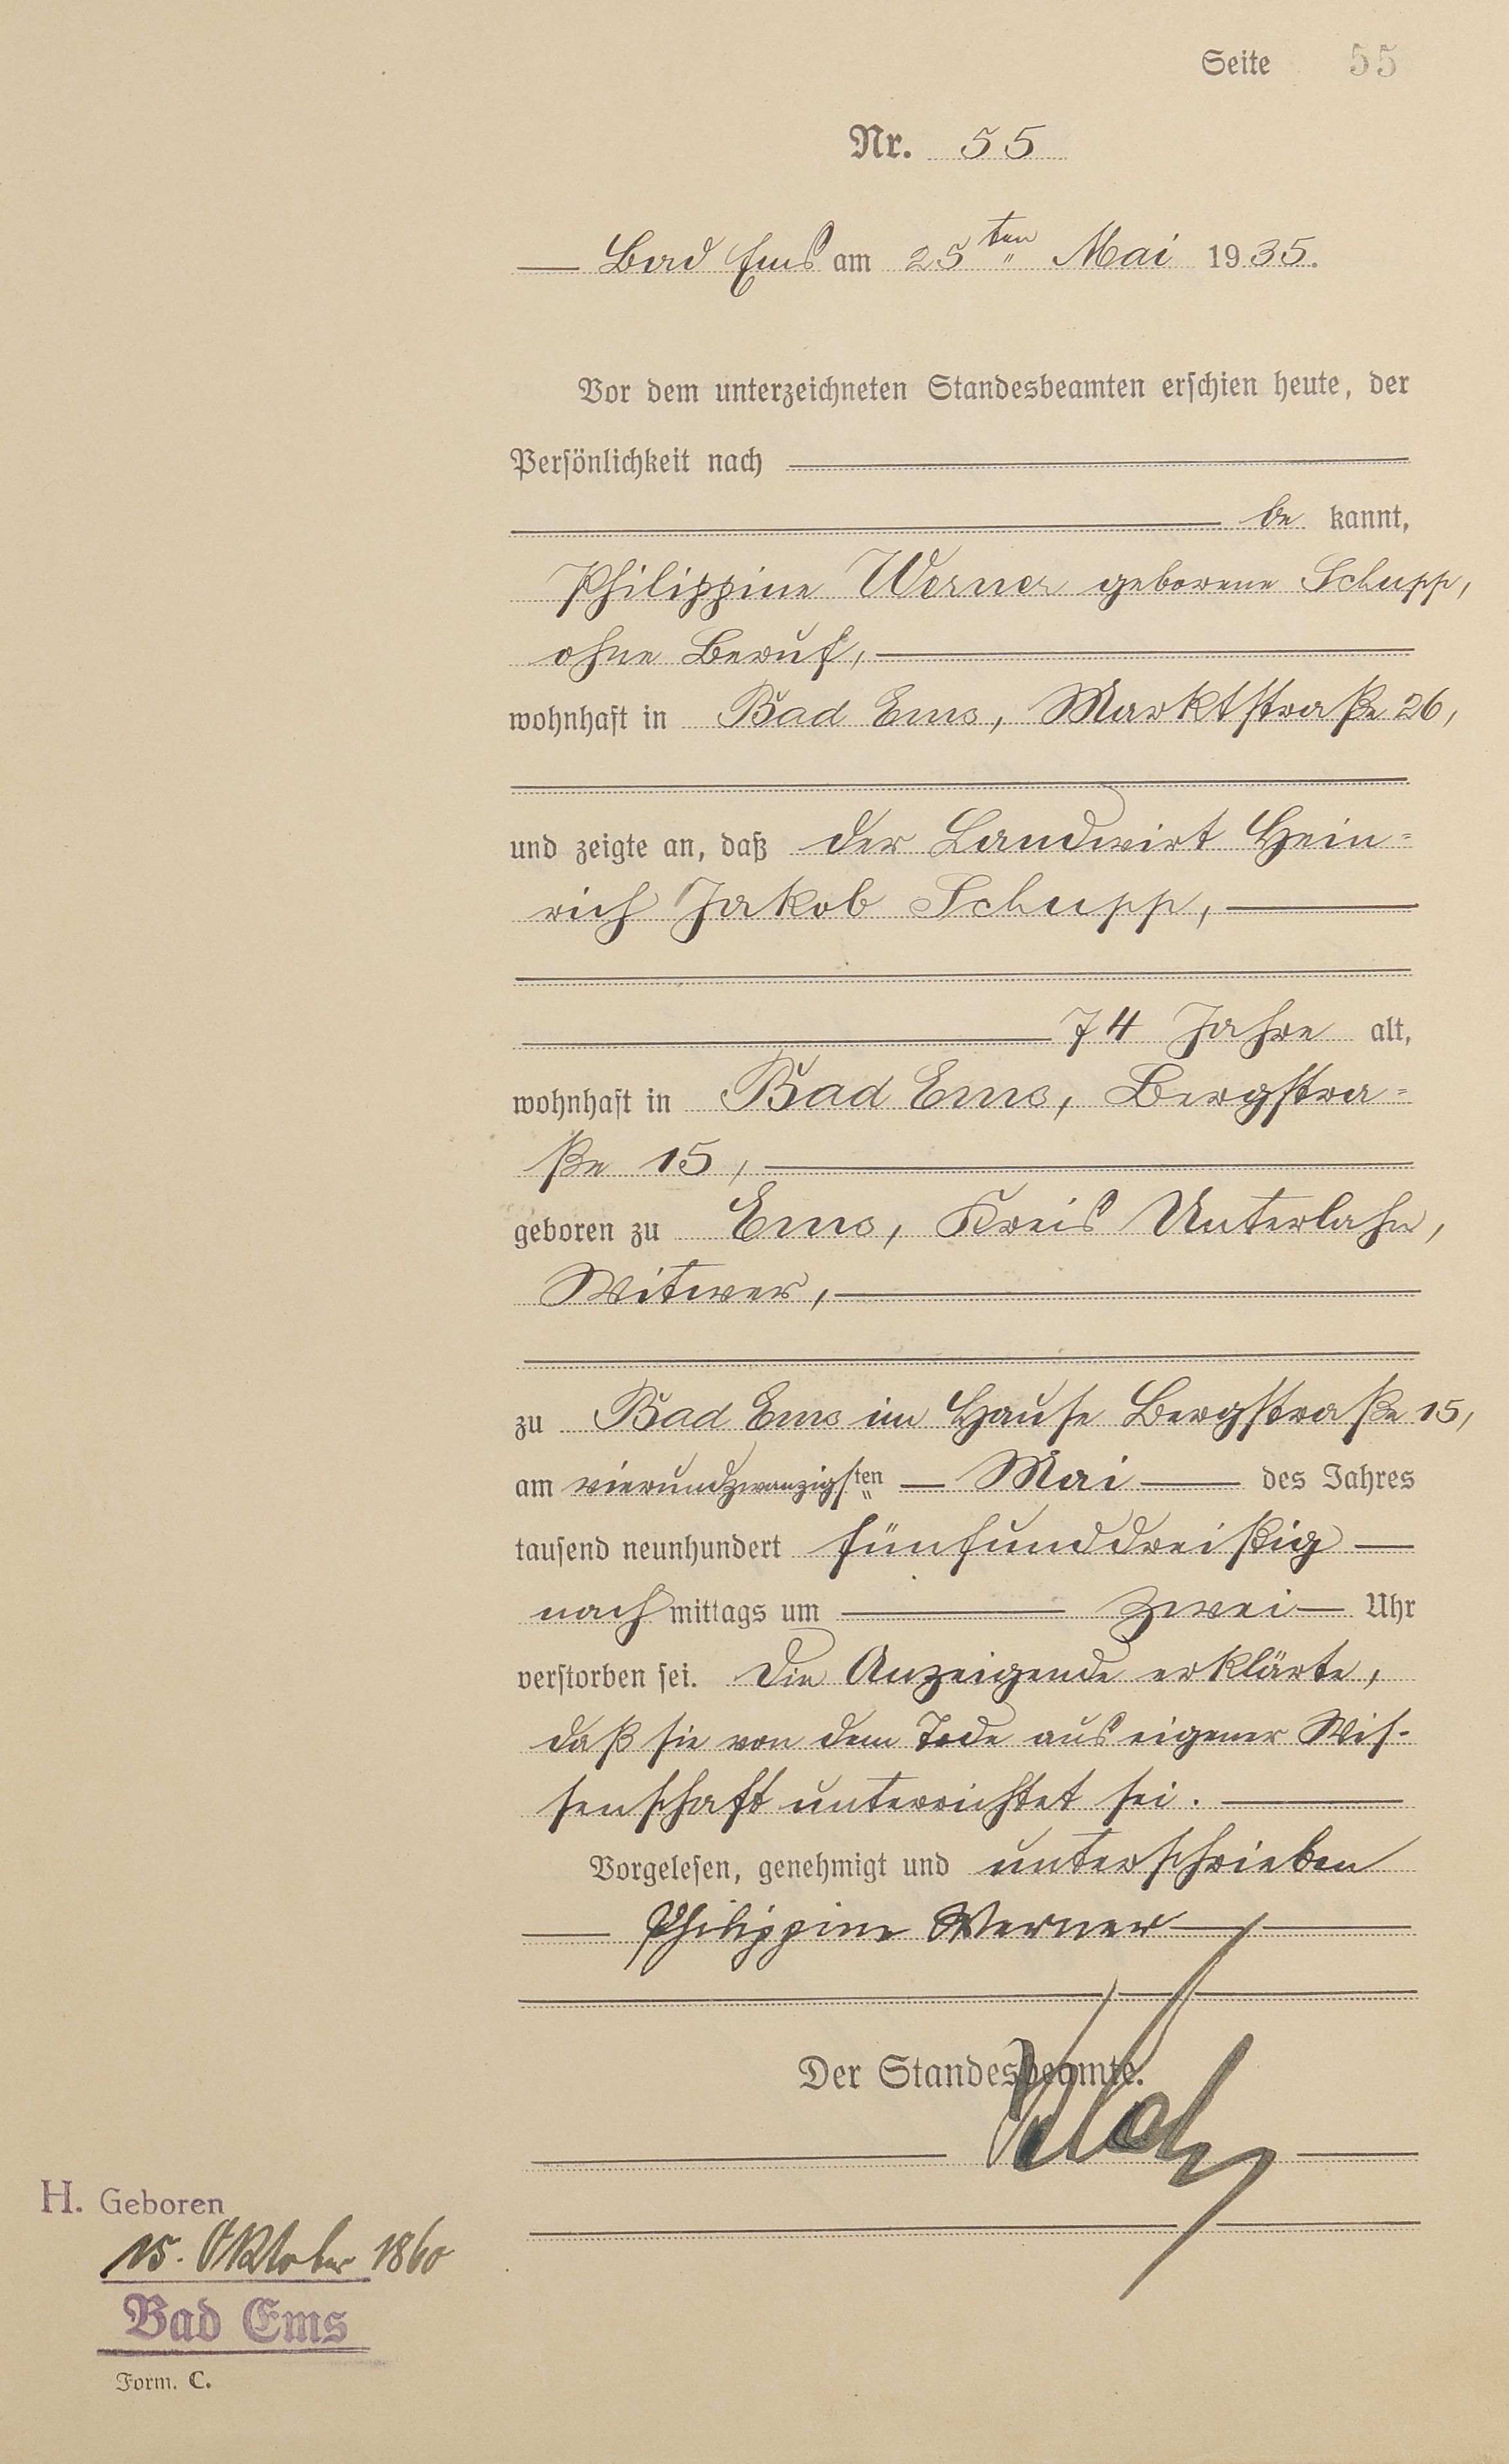 Seite 55
Nr. 55
Bad Ems am 25ten Mai 1935.
Vor dem unterzeichneten Standesbeamten erschien heute, der
Persönlichkeit nach
be kannt,
Philippine Werner geborene Schupp,
ohne Beruf,
wohnhaft in Bad Ems, Marktstraße 26,
und zeigte an, daß der Landwirt Hein=
rich Jakob Schupp,
74 Jahre alt,
wohnhaft in Bad Ems, Bergstra=
ße 15,
geboren zu Ems, Kreis Unterlahn,
Witwer,
zu Bad Ems im Hause Bergstraße 15,
am vierundzwanzigsten Mai des Jahres
tausend neunhundert fünfunddreißig
nachmittags um zwei Uhr
verstorben sei. Die Anzeigende erklärte,
daß sie von dem Tode aus eigener Wis-
senschaft unterrichtet sei.
Vorgelesen, genehmigt und unterschrieben
Philippine Werner
Der Standesbeamte.
H. Geboren
15. Oktober 1860
Bad Ems
Form. C.